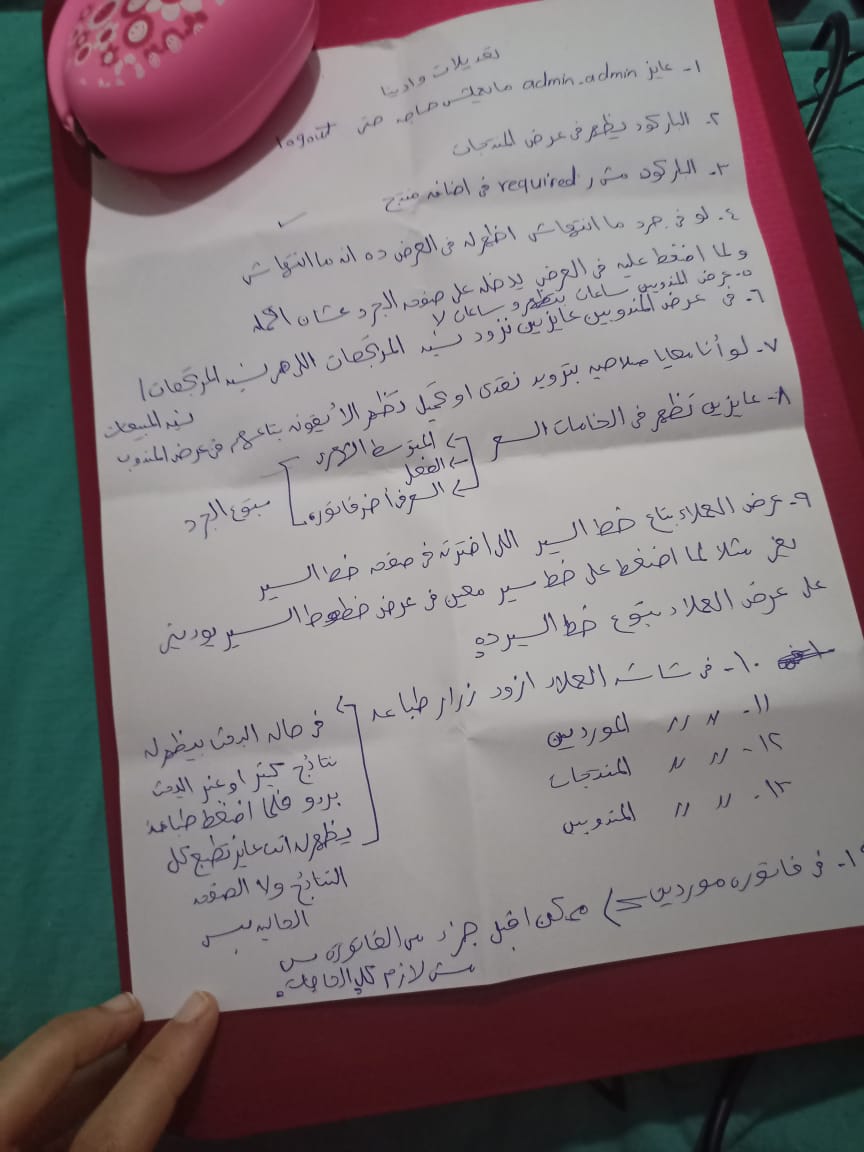 تعديلات وادينا
١- عايز admin.admin مايعملش حاجه حتى logout
٢- الباركود يظهر فى عرض المنتجات
٣- الباركود مش required فى اضافه منتج
٤- لو فى جرد ما انتهاش اظهرله فى العرض ده انه ما انتهاش
ولما اضغط عليه فى العرض يدخله على صفحه الجرد عشان اكمله
٥- عرض المندوبين ساعات بتظهر و ساعات لا
٦- فى عرض المندوبين عايزين نزود نسبه المرتجعات اللى هى نسبه المرتجعات /
نسبه المبيعات
٧- لو أنا معايا صلاحيه بتزويد نقدى او تحميل تظهر الأيقونه بتاعتهم فى عرض المندوب
٨- عايزين تظهر فى الخامات السعر
المتوسط الشهرى
الفعلى
السعر فى أخر فاتوره
بتوع الجرد
٩- عرض العملاء بتاع خط السير اللى اخترته فى صفحه خط السير
يعنى مثلا لما اضغط على خط سير معين فى عرض خطوط السير يودينى
على عرض العملاء بتوع خط السير ده
١٠- فى شاشه العملاء ازود زرار طباعه
١١- " " " الموردين
١٢- " " المنتجات
١٣- " " المندوبين
فى حاله البحث بيظهرله
نتائج كتير او غير البحث
بردو فلما اضغط طباعه
يظهرله انت عايز تطبع كل
النتائج ولا الصفحه
الحاليه بس
١٤- فى فاتوره موردين => ممكن اقبل جزء من الفاتوره بس
مش لازم كل الحاجات.